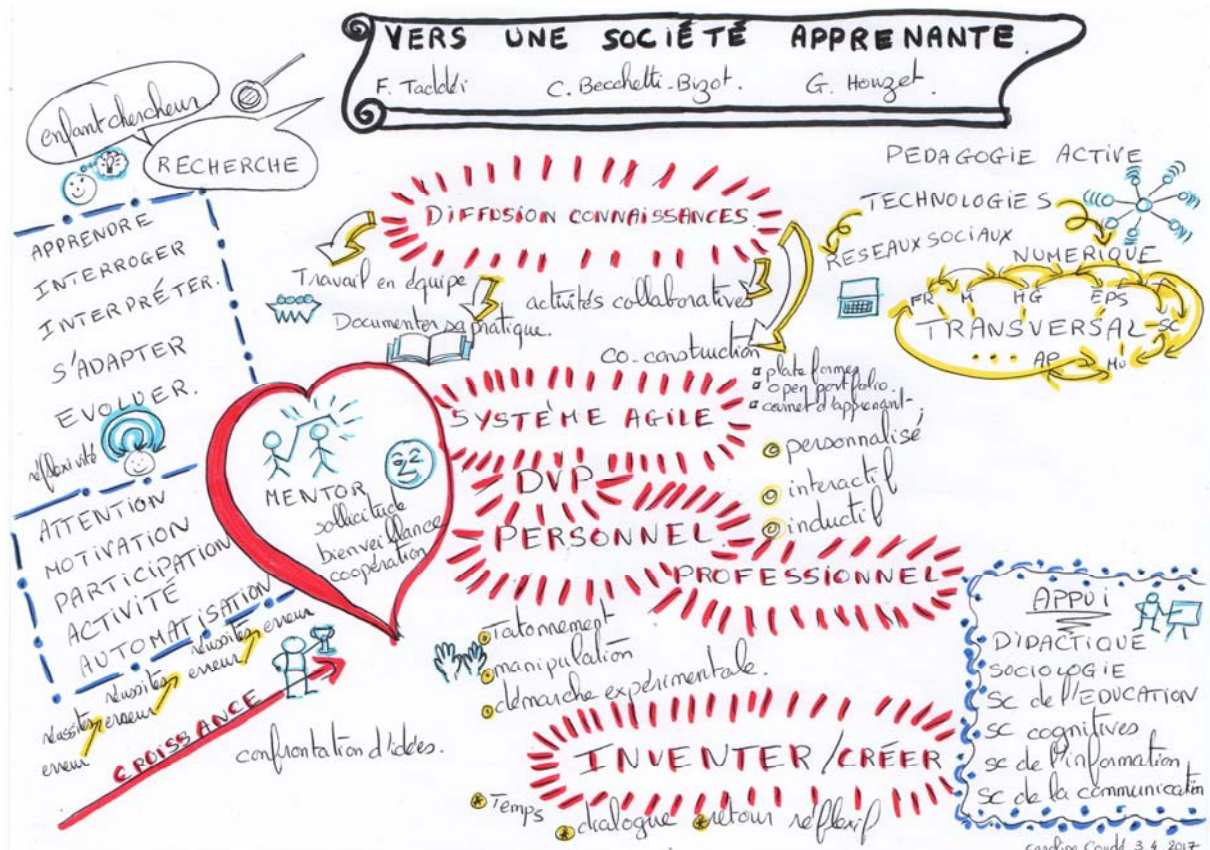 VERS UNE SOCIÉTÉ APPRENANTE
F. Taddéi C. Becchetti-Bizot. G. Houzet.
enfant chercheur
RECHERCHE
APPRENDRE
INTERROGER
INTERPRÉTER.
S'ADAPTER
EVOLUER.
réflexivité
ATTENTION
MOTIVATION
PARTICIPATION
ACTIVITÉ
AUTOMATISATION
erreur réussites erreur réussites erreur réussites erreur
CROISSANCE
confrontation d'idées.
MENTOR
sollicitude
bienveillance
coopération
DIFFUSION CONNAISSANCES.
Travail en équipe
Documenter sa pratique.
activités collaboratives
co-construction
plateformes
open portfolio.
carnet d'apprenant
SYSTÈME AGILE
DVP
PERSONNEL.
PROFESSIONNEL
personnalisé
interactif
inductif
Tatonnement
manipulation
démarche expérimentale.
INVENTER/CRÉER
Temps
dialogue
retour réflexif
PEDAGOGIE ACTIVE
TECHNOLOGIES
RESEAUX SOCIAUX
NUMERIQUE
FR M HG EPS
TRANSVERSAL SC
... AP MU
APPUI
DIDACTIQUE
SOCIOLOGIE
SC de l'EDUCATION
SC cognitives
sc de l'information
sc de la communication
Caroline Coudé 3.4.2017